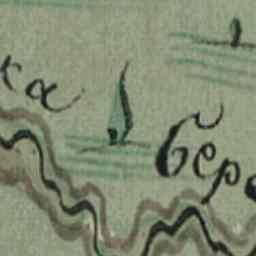 ка
бере